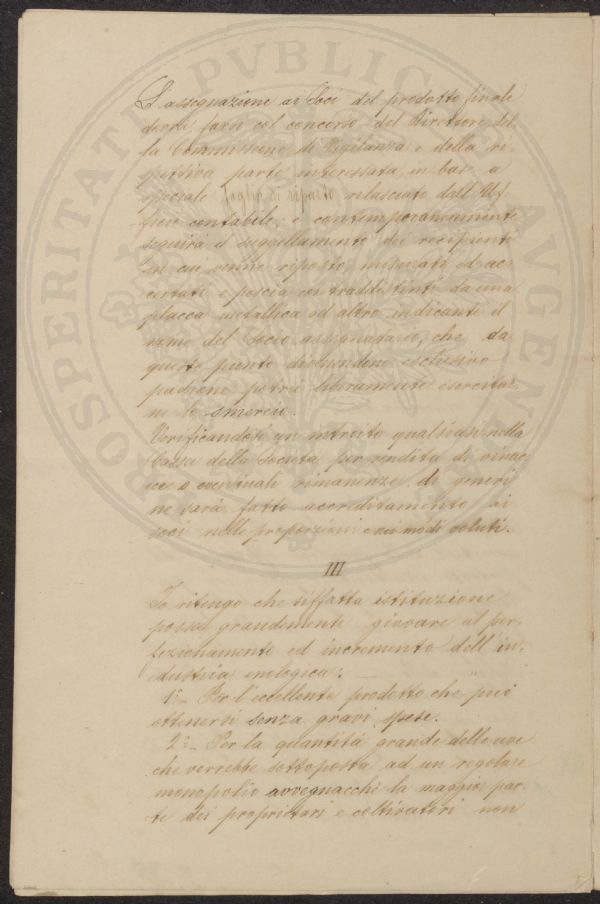 L'assegnazione ai Soci del prodotto finale
dovrà farsi col concorso del Direttore, del
la Commissione di Vigilanza e della ri-
spettiva parte interessata, in base a
speciale foglio di riparto rilasciato dall'Uf-
ficio contabile; e contemporaneamente
seguirà il suggellamento dei recipienti
in cui venne riposto, misurati ed ac-
certati e poscia contraddistinti da una
placca metallica od altro indicante il
nome del Socio assegnatario, che da
questo punto divenendone esclusivo
padrone potrà liberamente esercitar
ne lo smercio.
Verificandosi un introito qualsiasi nella
Cassa della Società per vendita di vinac
cie o eventuali rimanenze di generi
ne sarà fatto accreditamento ai
soci nelle proporzioni e nei modi voluti.
III
Io ritengo che siffatta istituzione
possa grandemente giovare al per-
fezionamento ed incremento dell'in-
dustria enologica:
1º Per l'eccellente prodotto che può
ottenersi senza gravi spese.
2º Per la quantità grande delle uve
che verrebbe sottoposta ad un regolare
monopolio avvegnacchè la maggior par-
te dei proprietari e coltivatori non
PROSPERITATI PVBLICAE AVGENDAE